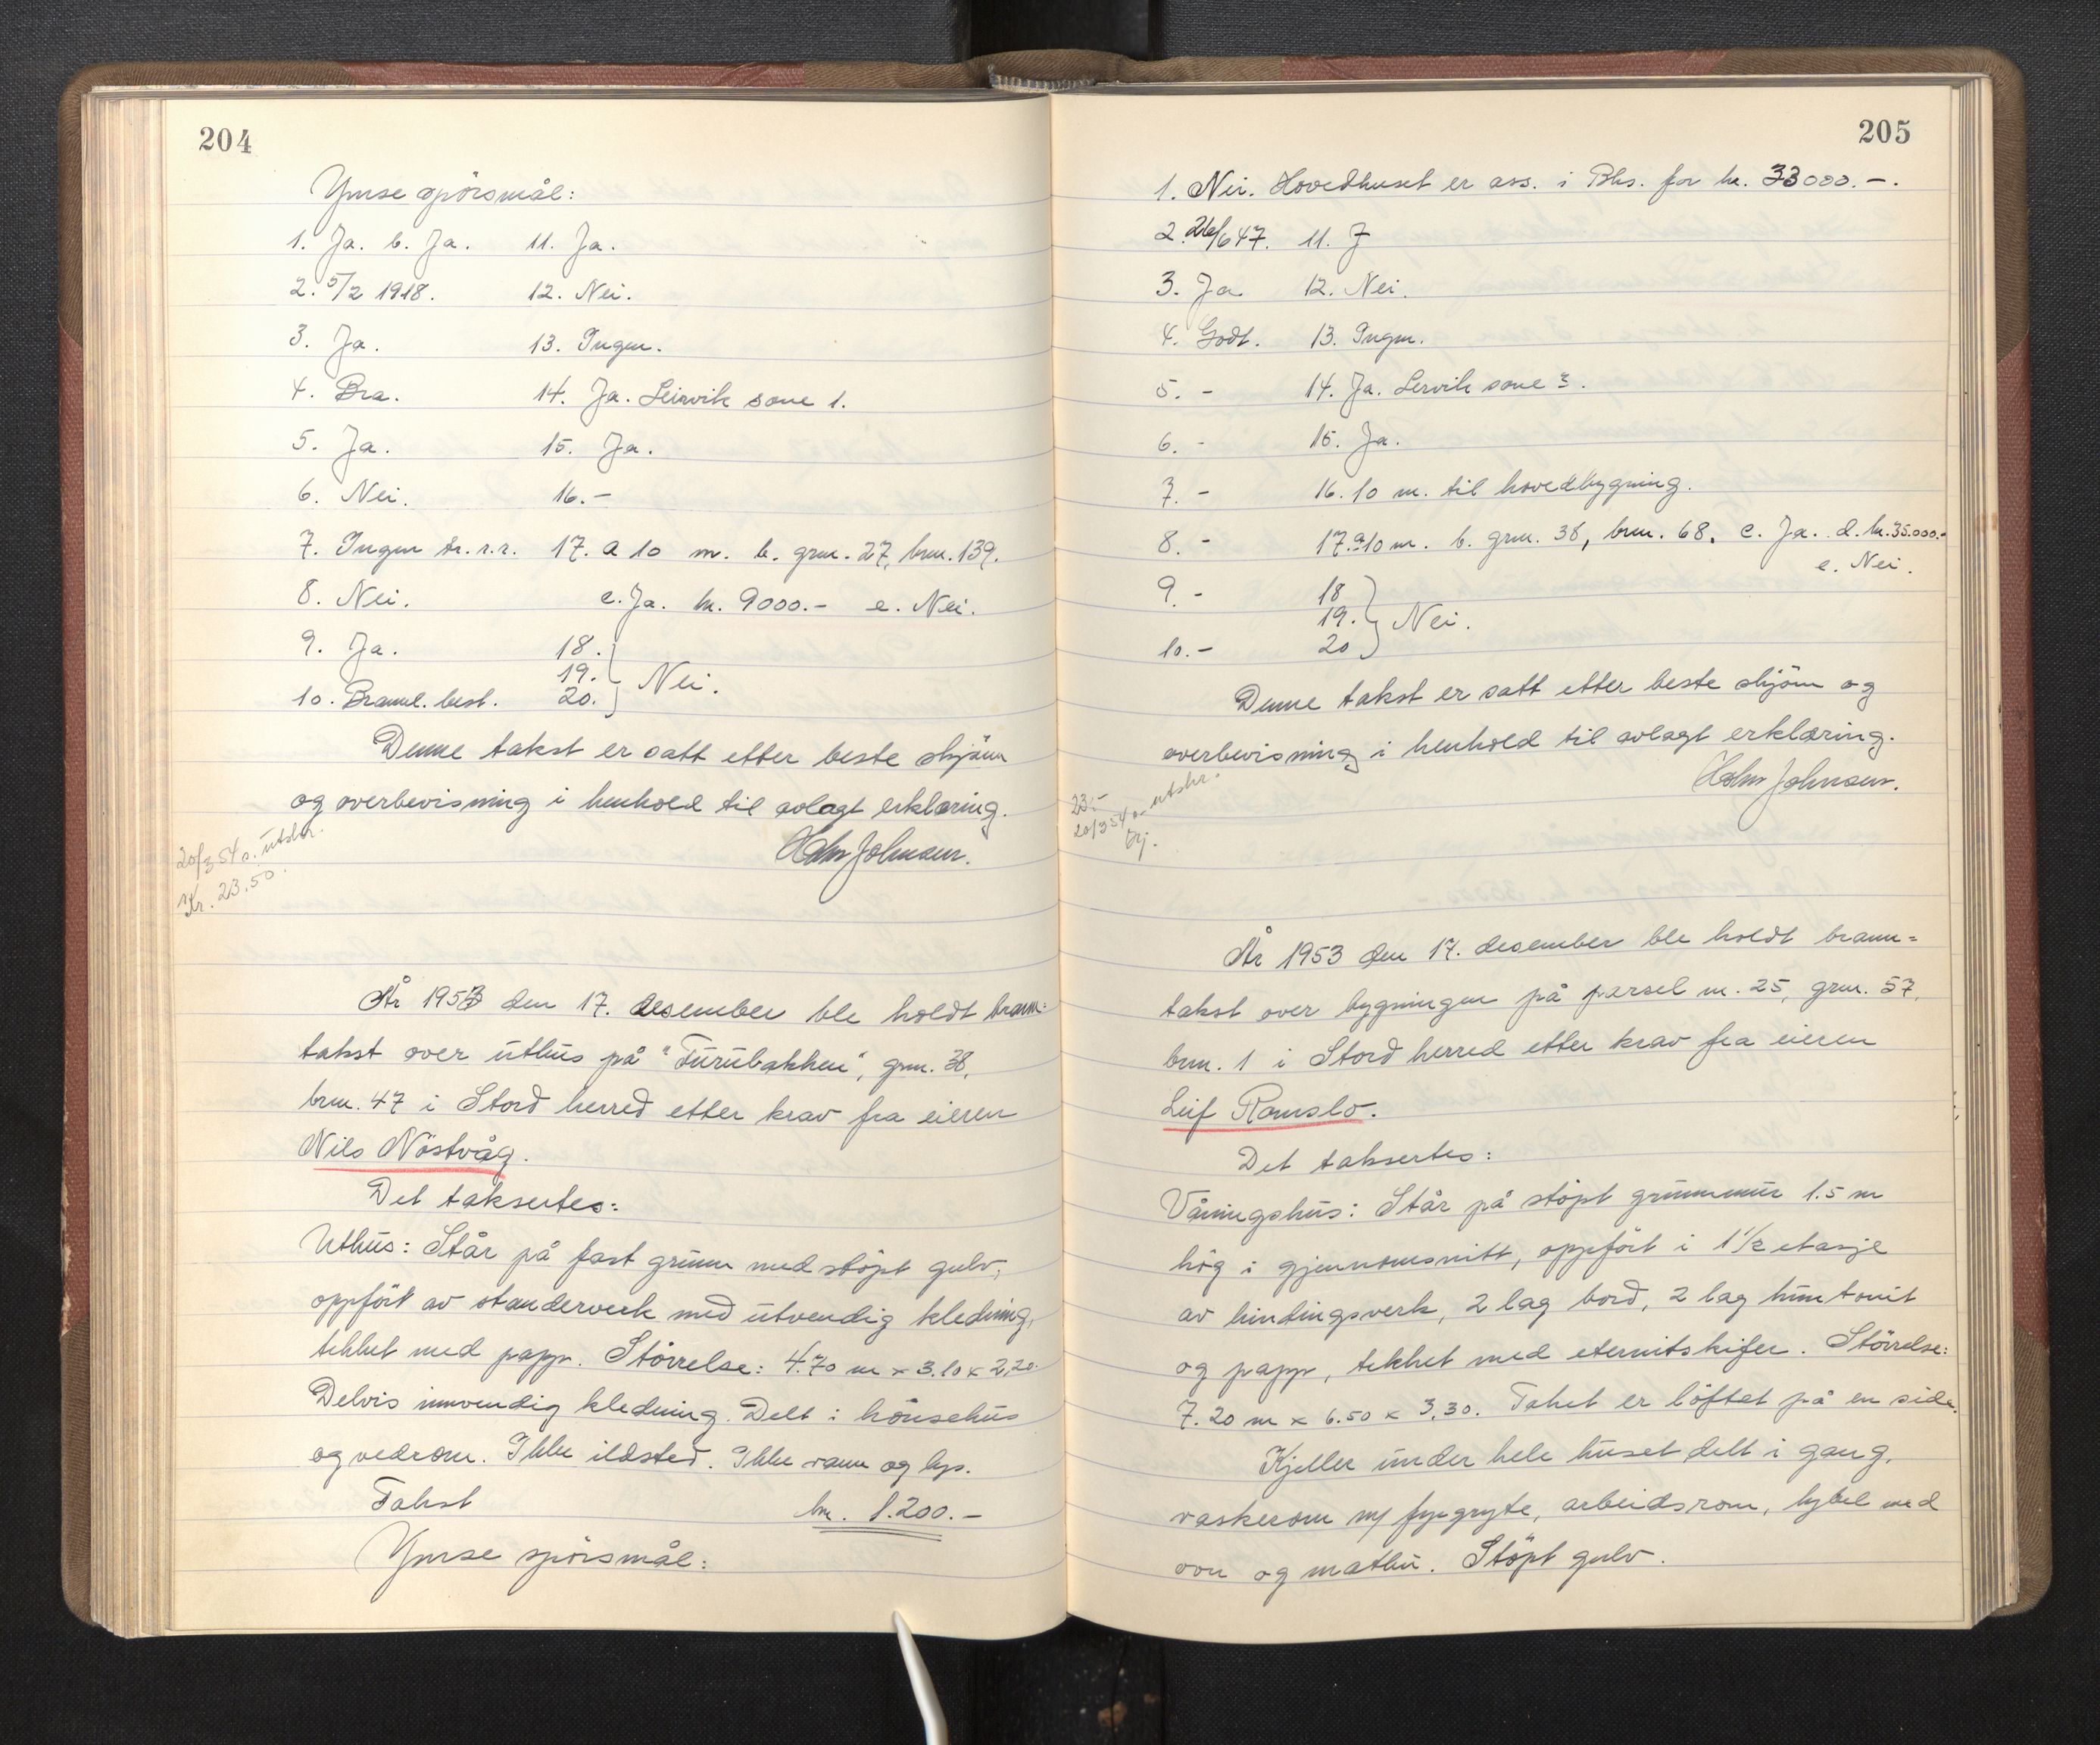 204
Ymse spörsmål:
1. Ja. b. Ja. 11. Ja.
2. 5/2 1918. 12. Nei.
3. Ja. 13. Ingen.
4. Bra. 14. Ja. Leirvik sone 1.
5. Ja. 15. Ja.
6. Nei. 16. -
7. Ingen br.r.r. 17. a 10 m. b. grn. 27, brn. 139.
8. Nei. c. Ja. kr. 9000.- e. Nei.
9. Ja. 18.
19. Nei.
10. Brannl. best. 20.
Denne takst er satt etter beste skjönn
og overbevisning i henhold til avlagt erklæring.
Hahr Johnsen.
20/3 54 s. utskr.
Kr. 23.50.
År 1953 den 17. desember ble holdt brann=
takst over uthus på "Furubakken", grn. 38,
brn. 47 i Stord herred etter krav fra eieren
Nils Nöstvåg.
Det taksertes:
Uthus: Står på fast grunn med stöpt gulv,
oppfört av standerverk med utvendig kledning,
tekket med papp. Störrelse: 4.70 m x 3.10 x 2,20.
Delvis innvendig kledning. Delt i hönsehus
og vedrom. Ikke ildsted. Ikke vann og lys.
Takst kr. 1.200.-
Ymse spörsmål:
205
1. Nei. Hovedhuset er ass. i Bks. for kr. 33000.-.
2. 26/6 47. 11. J
3. Ja 12. Nei.
4. Godt. 13. Ingen.
5. - 14. Ja. Lervik sone 3.
6. - 15. Ja.
7. - 16. 10 m. til hovedbygning.
8. - 17. a 10 m. b. grn. 38, brn. 68. c. Ja. d. kr. 35.000.-
e. Nei.
9. - 18
19. Nei.
10. - 20
Denne takst er satt etter beste skjönn og
overbevisning i henhold til avlagt erklæring.
Hahr Johnsen.
23.-
20/3 54 s. utskr.
År 1953 den 17. desember ble holdt brann=
takst over bygningen på parsel nr. 25, grn. 57,
brn. 1 i Stord herred etter krav fra eieren
Leif Ramslo.
Det taksertes:
Våningshus: Står på stöpt grunnmur 1.5 m
hög i gjennomsnitt, oppfört i 1 1/2 etasje
av bindingsverk, 2 lag bord, 2 lag huntonit
og papp, tekket med eternitskifer. Störrelse:
7.20 m x 6.50 x 3,30. Taket er löftet på en side.
Kjeller under hele huset delt i gang,
vaskerom m/ fyrgryte, arbeidsrom, hybel med
ovn og matbu. Stöpt gulv.